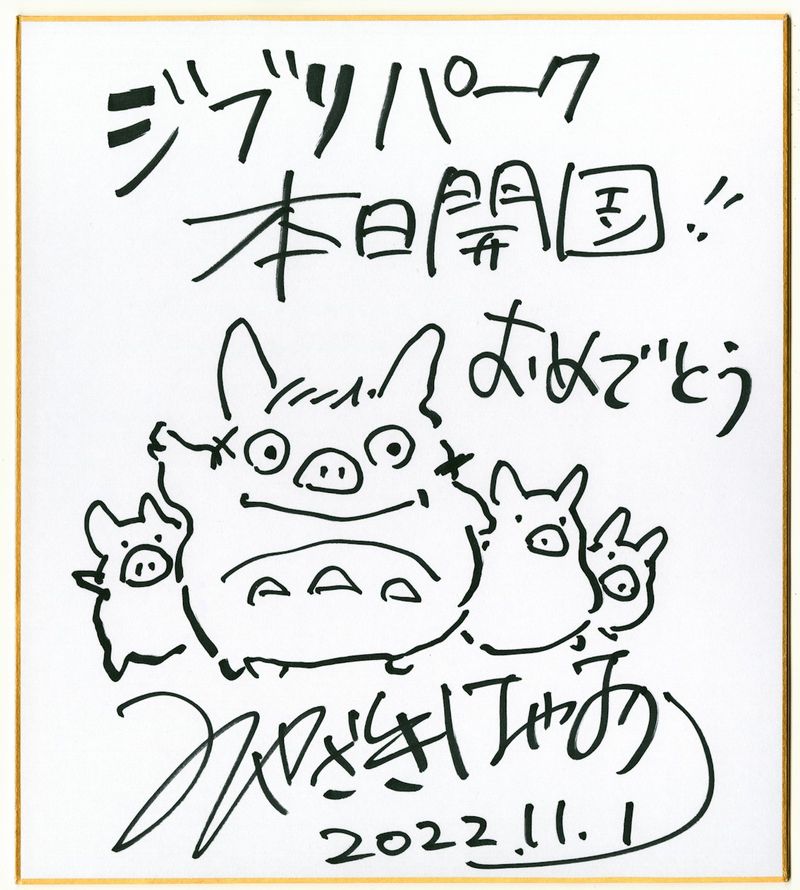 ジブリパーク
本日開国!!
おめでとう
みやざきにゃお
2022.11.1